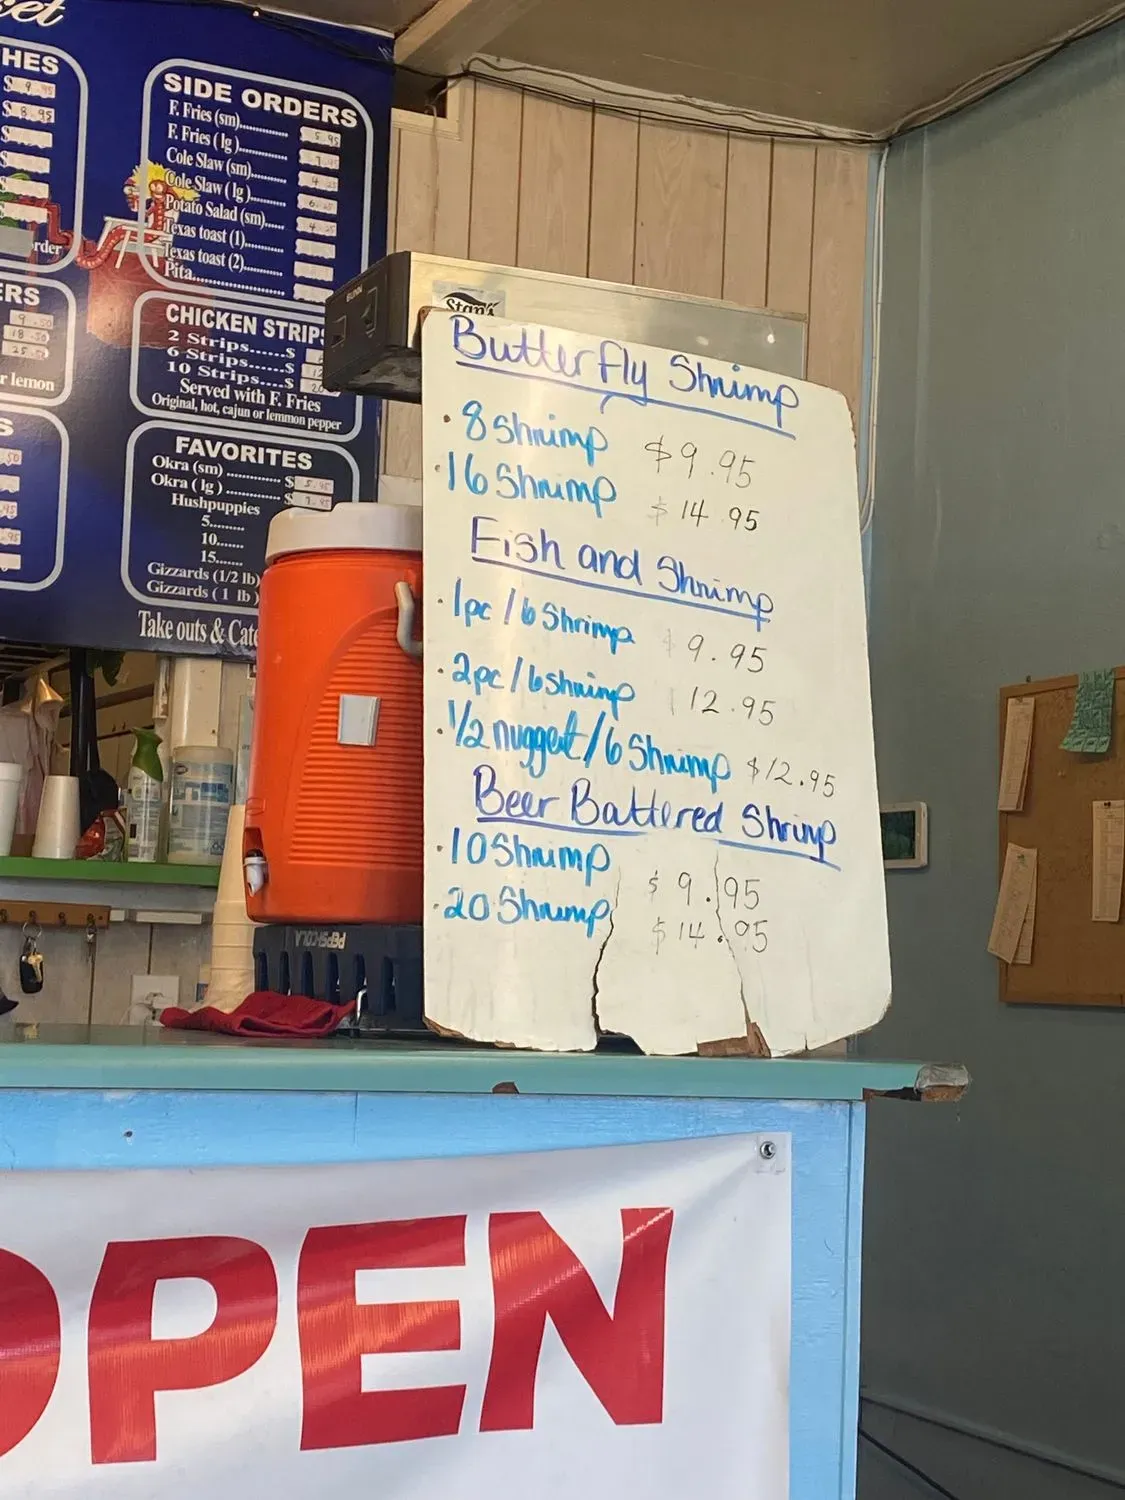 et
HES
$ 9.95
$ 8.95
$
$
$
$
order
ERS
9.50
18.50
r lemon
S
50
95
95
SIDE ORDERS
F. Fries (sm)............ 5.95
F. Fries (lg)............
Cole Slaw (sm)..........
Cole Slaw (lg)..........
Potato Salad (sm).......
Texas toast (1)...........
Texas toast (2)...........
Pita.........................
CHICKEN STRIPS
2 Strips......$
6 Strips......$
10 Strips....$
Served with F. Fries
Original, hot, cajun or lemmon pepper
FAVORITES
Okra (sm) ............ $ 5.95
Okra (lg) ............. $ 7.95
Hushpuppies
5.........
10.......
15.......
Gizzards (1/2 lb)
Gizzards ( 1 lb )
Take outs & Cate
BUNN
Stan's
Butterfly Shrimp
• 8 Shrimp $9.95
• 16 Shrimp $14.95
Fish and Shrimp
• 1pc / 6 Shrimp 9.95
• 2pc / 6 shrimp 12.95
• 1/2 nugget / 6 Shrimp $12.95
Beer Battered Shrimp
• 10 Shrimp $9.95
• 20 Shrimp $14.95
PEPSI-COLA
OPEN